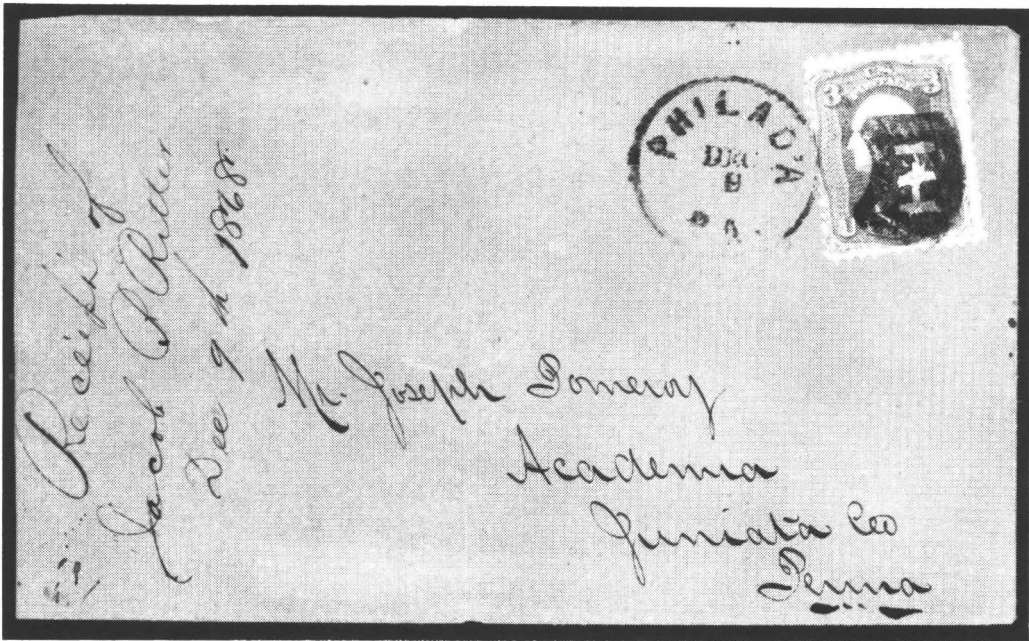 Receipt of
Jacob P Ritter
Dec 9th 1868
PHILAD'A
DEC
9
PA.
3 3
Mr. Joseph Pomeroy
Academia
Juniata Co
Penna